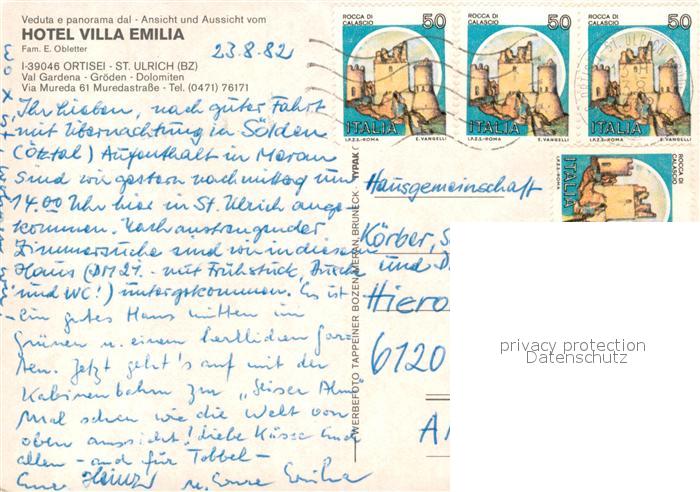 Veduta e panorama dal - Ansicht und Aussicht vom
HOTEL VILLA EMILIA
Fam. E. Obletter
I-39046 ORTISEI - ST. ULRICH (BZ)
Val Gardena - Gröden - Dolomiten
Via Mureda 61 Muredastraße - Tel. (0471) 76171
23.8.82
Ihr Lieben, nach guter Fahrt
mit Übernachtung in Sölden
(Ötztal) Aufenthalt in Meran
sind wir gestern nachmittag um
14.00 Uhr hier in St. Ulrich ange-
kommen. Nach anstrengender
Zimmersuche sind wir in diesem
Haus (DM 21.- mit Frühstück, Dusche
und WC!) untergekommen. Es ist
ein gutes Haus mitten im
Grünen u. einem herrlichen Gar-
ten. Jetzt geht's auf mit der
Kabinenbahn zur "Seiser Alm"
Mal sehen wie die Welt von
oben aussieht! Liebe Küsse Euch
allen - und für
Eure Heinz u. Eure
WERBEFOTO TAPPEINER BOZEN, MERAN, BRUNECK - TYPAK
ROCCA DI CALASCIO 50
ITALIA
I.P.Z.S.-ROMA E. VANGELLI
ROCCA DI CALASCIO 50
ITALIA
I.P.Z.S.-ROMA E. VANGELLI
ROCCA DI CALASCIO 50
ITALIA
I.P.Z.S.-ROMA E. VANGELLI
ROCCA DI CALASCIO
ITALIA
I.P.Z.S.-ROMA
Hausgemeinschaft
Körber, S
und D
Hiero
6120
privacy protection
Datenschutz